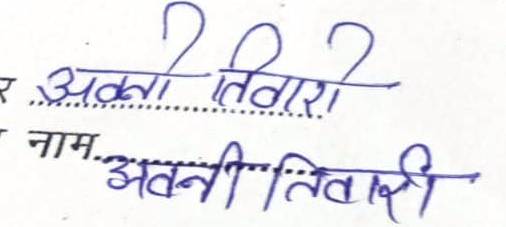 र अवनी तिवारी
नाम अवनी तिवारी